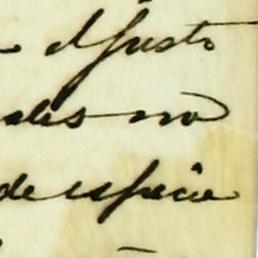 el Justo
ales no
de especie